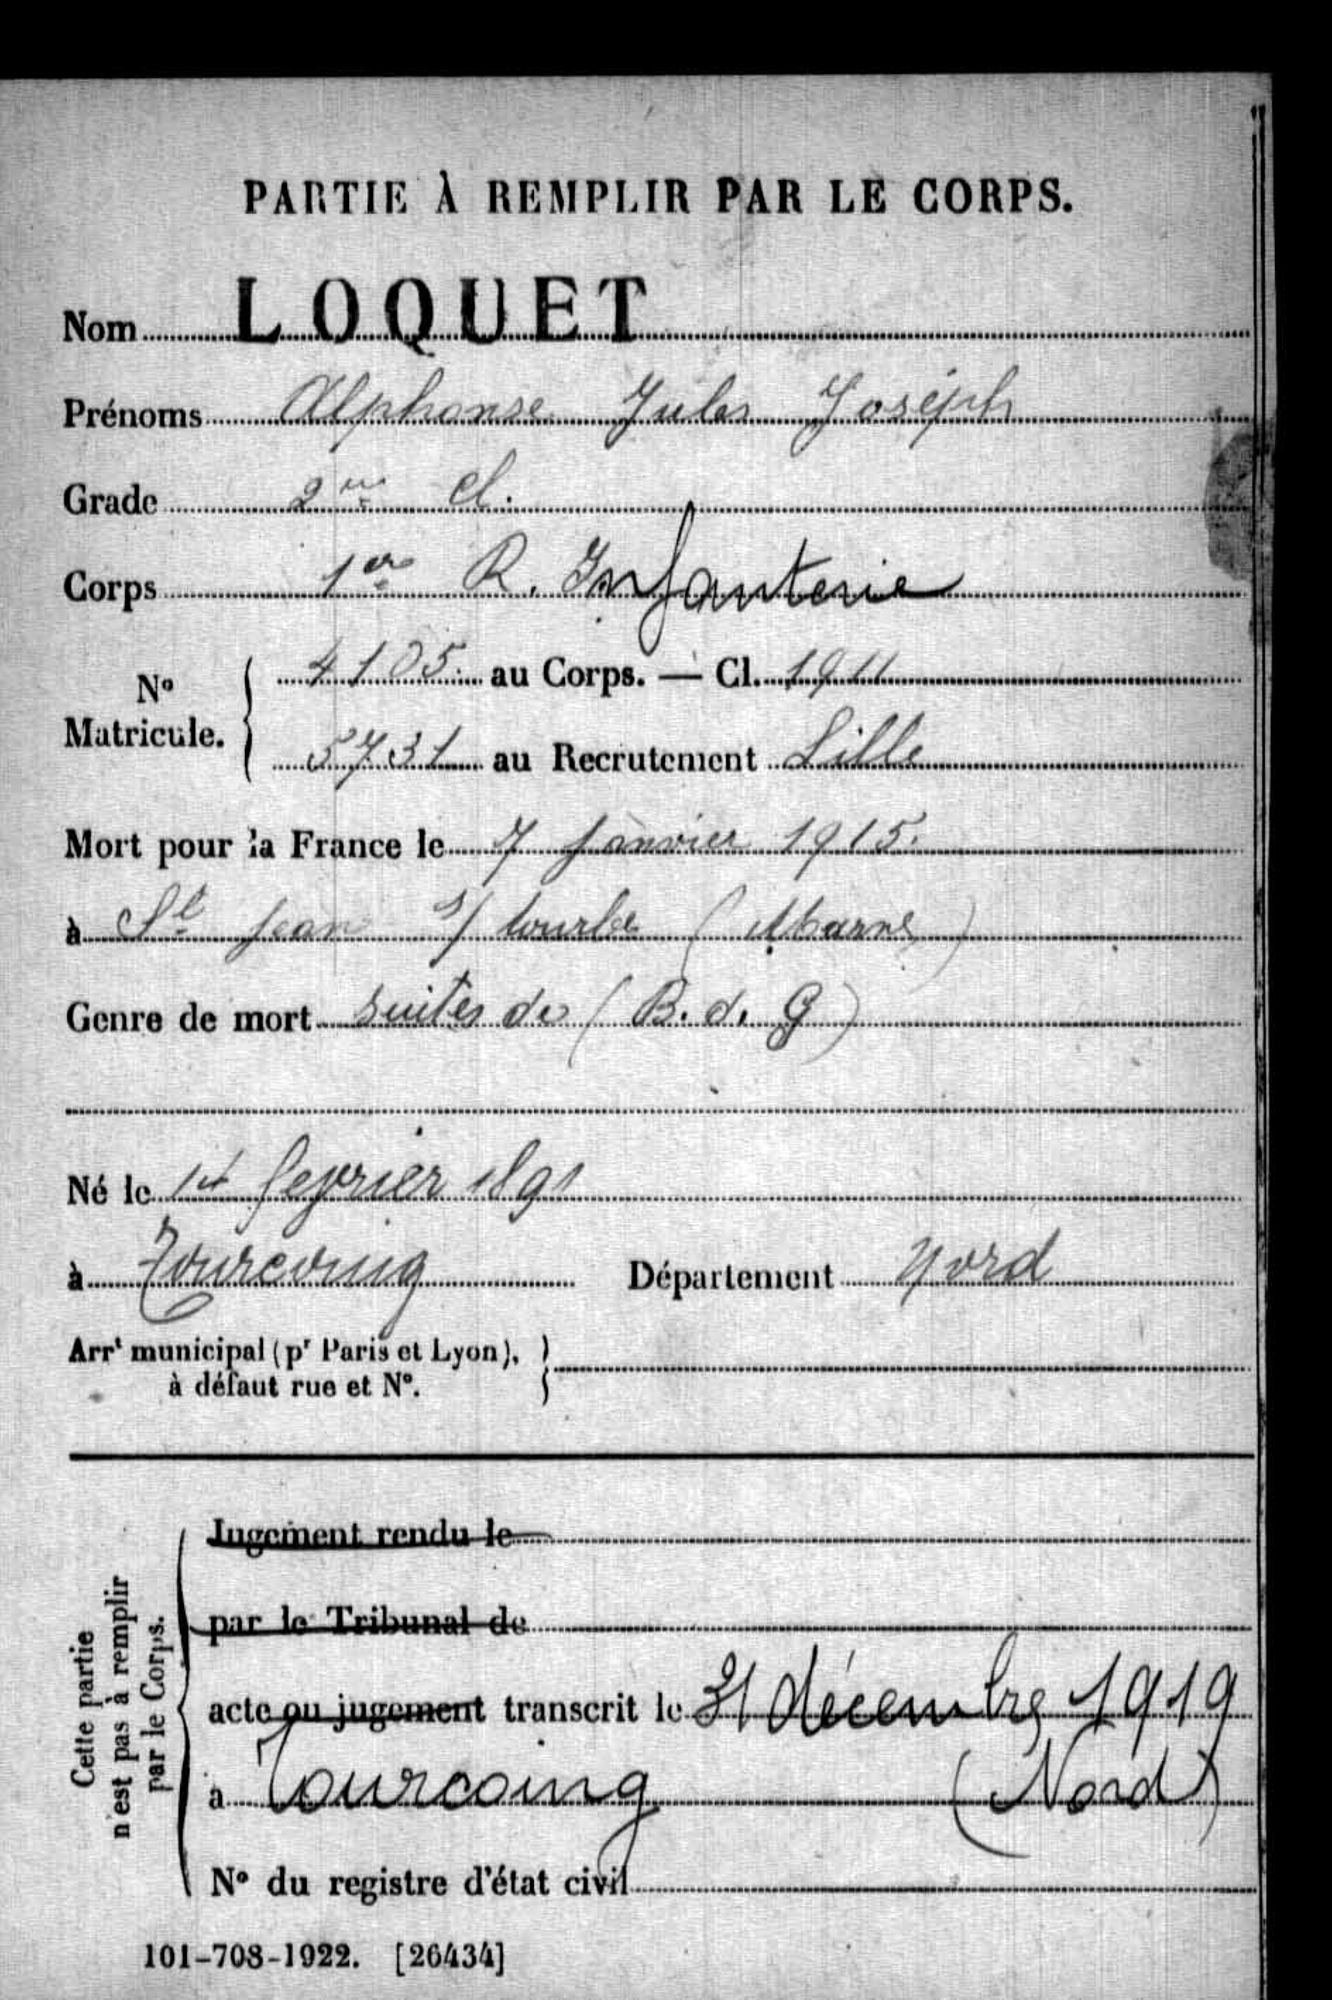 PARTIE À REMPLIR PAR LE CORPS.
Nom LOQUET
Prénoms Alphonse Jules Joséph
Grade 2me cl.
Corps 1er R. Infanterie
No Matricule. 4105. au Corps. — Cl. 1911
5731 au Recrutement Lille
Mort pour la France le 7 janvier 1915.
à St Jean s/ tourbe (Marne)
Genre de mort suites de (B. d. G)
Né le 14 fevrier 1891
à Tourcoing Département Nord
Arrt municipal (pr Paris et Lyon), à défaut rue et No.
Cette partie n'est pas à remplir par le Corps.
Jugement rendu le
par le Tribunal de
acte ou jugement transcrit le 31 décembre 1919
à Tourcoing (Nord)
No du registre d'état civil
101-708-1922. [26434]